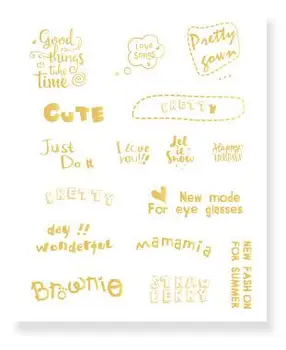 Good
things
take
time
Love
Songs
Pretty
gown
CUTE
PRETTY
Just
Do It
I Love
you!!!
Let
it
Snow
Always
PRETTY
New mode
For eye glasses
day !!
wonderful
mamamia
NEW FASHION
FOR SUMMER
Brownie
STRAW
BERRY